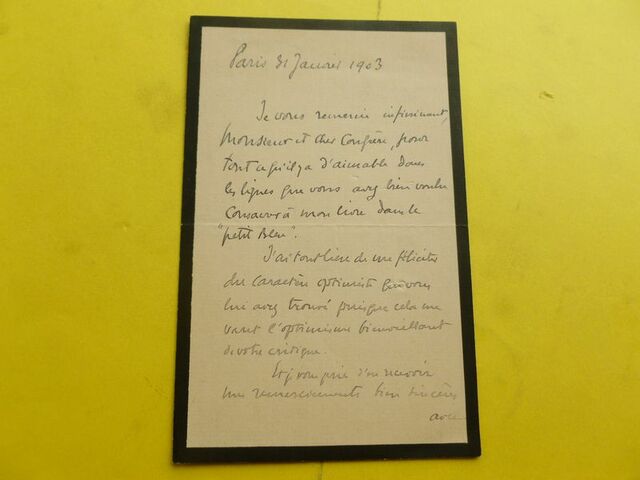 Paris 31 Janvier 1903
Je vous remercie infiniment,
Monsieur et cher Confrère, pour
tout ce qu'il y a d'aimable dans
les lignes que vous avez bien voulu
Consacrer à mon livre dans le
"petit Bleu".
J'ai tout lieu de me féliciter
du caractère optimiste que vous
lui avez trouvé puisque cela me
vaut l'optimisme bienveillant
de votre critique.
Et je vous prie d'en recevoir
mes remerciements bien sincères
avec